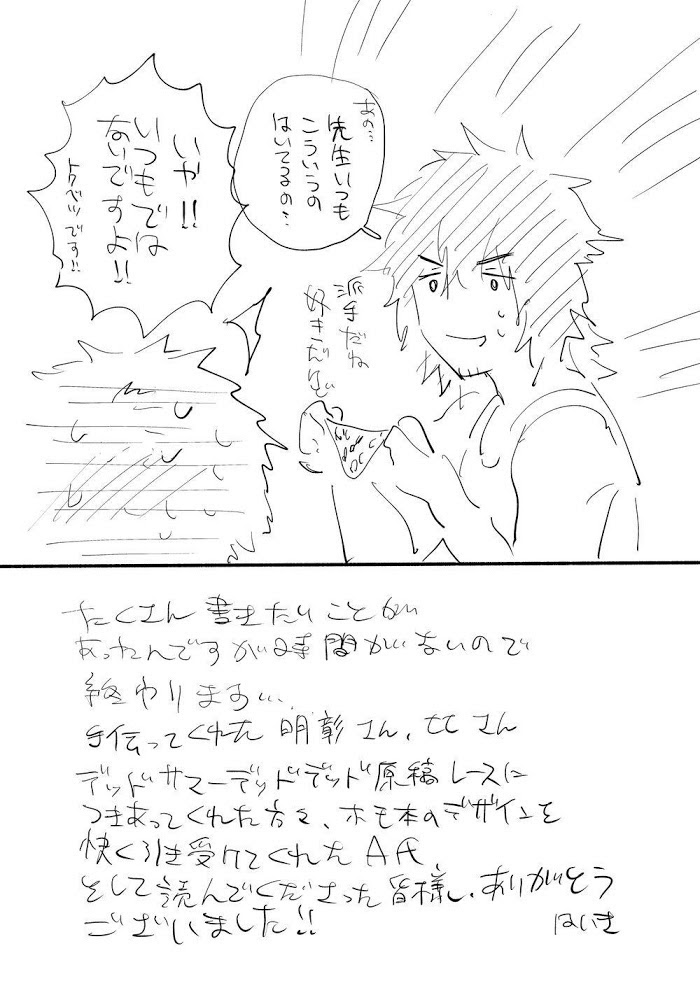 あの…
先生いつも
こういうの
はいてるの…
いや!!
いつもでは
ないですよ!!
トクベツです!!
派手だね
好きだぜ
たくさん書きたいことが
あったんですが時間がないので
終わります…
手伝ってくれた明彰さん、ヒビさん
デッドサマーデッドデッド原稿レースに
つきあってくれた方々、ホモ本のデザインを
快く引き受けてくれたA氏、
そして読んでくださった皆様、ありがとう
ございました!!
はいき